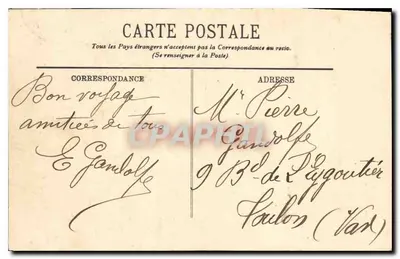 CARTE POSTALE
Tous les Pays étrangers n'acceptent pas la Correspondance au recto.
(Se renseigner à la Poste)
CORRESPONDANCE
ADRESSE
Bon voyage
amitiés de tous
E Gandolfe
Mr Pierre
Gandolfe
9 Bd de
Toulon (Var)
CPARAMA